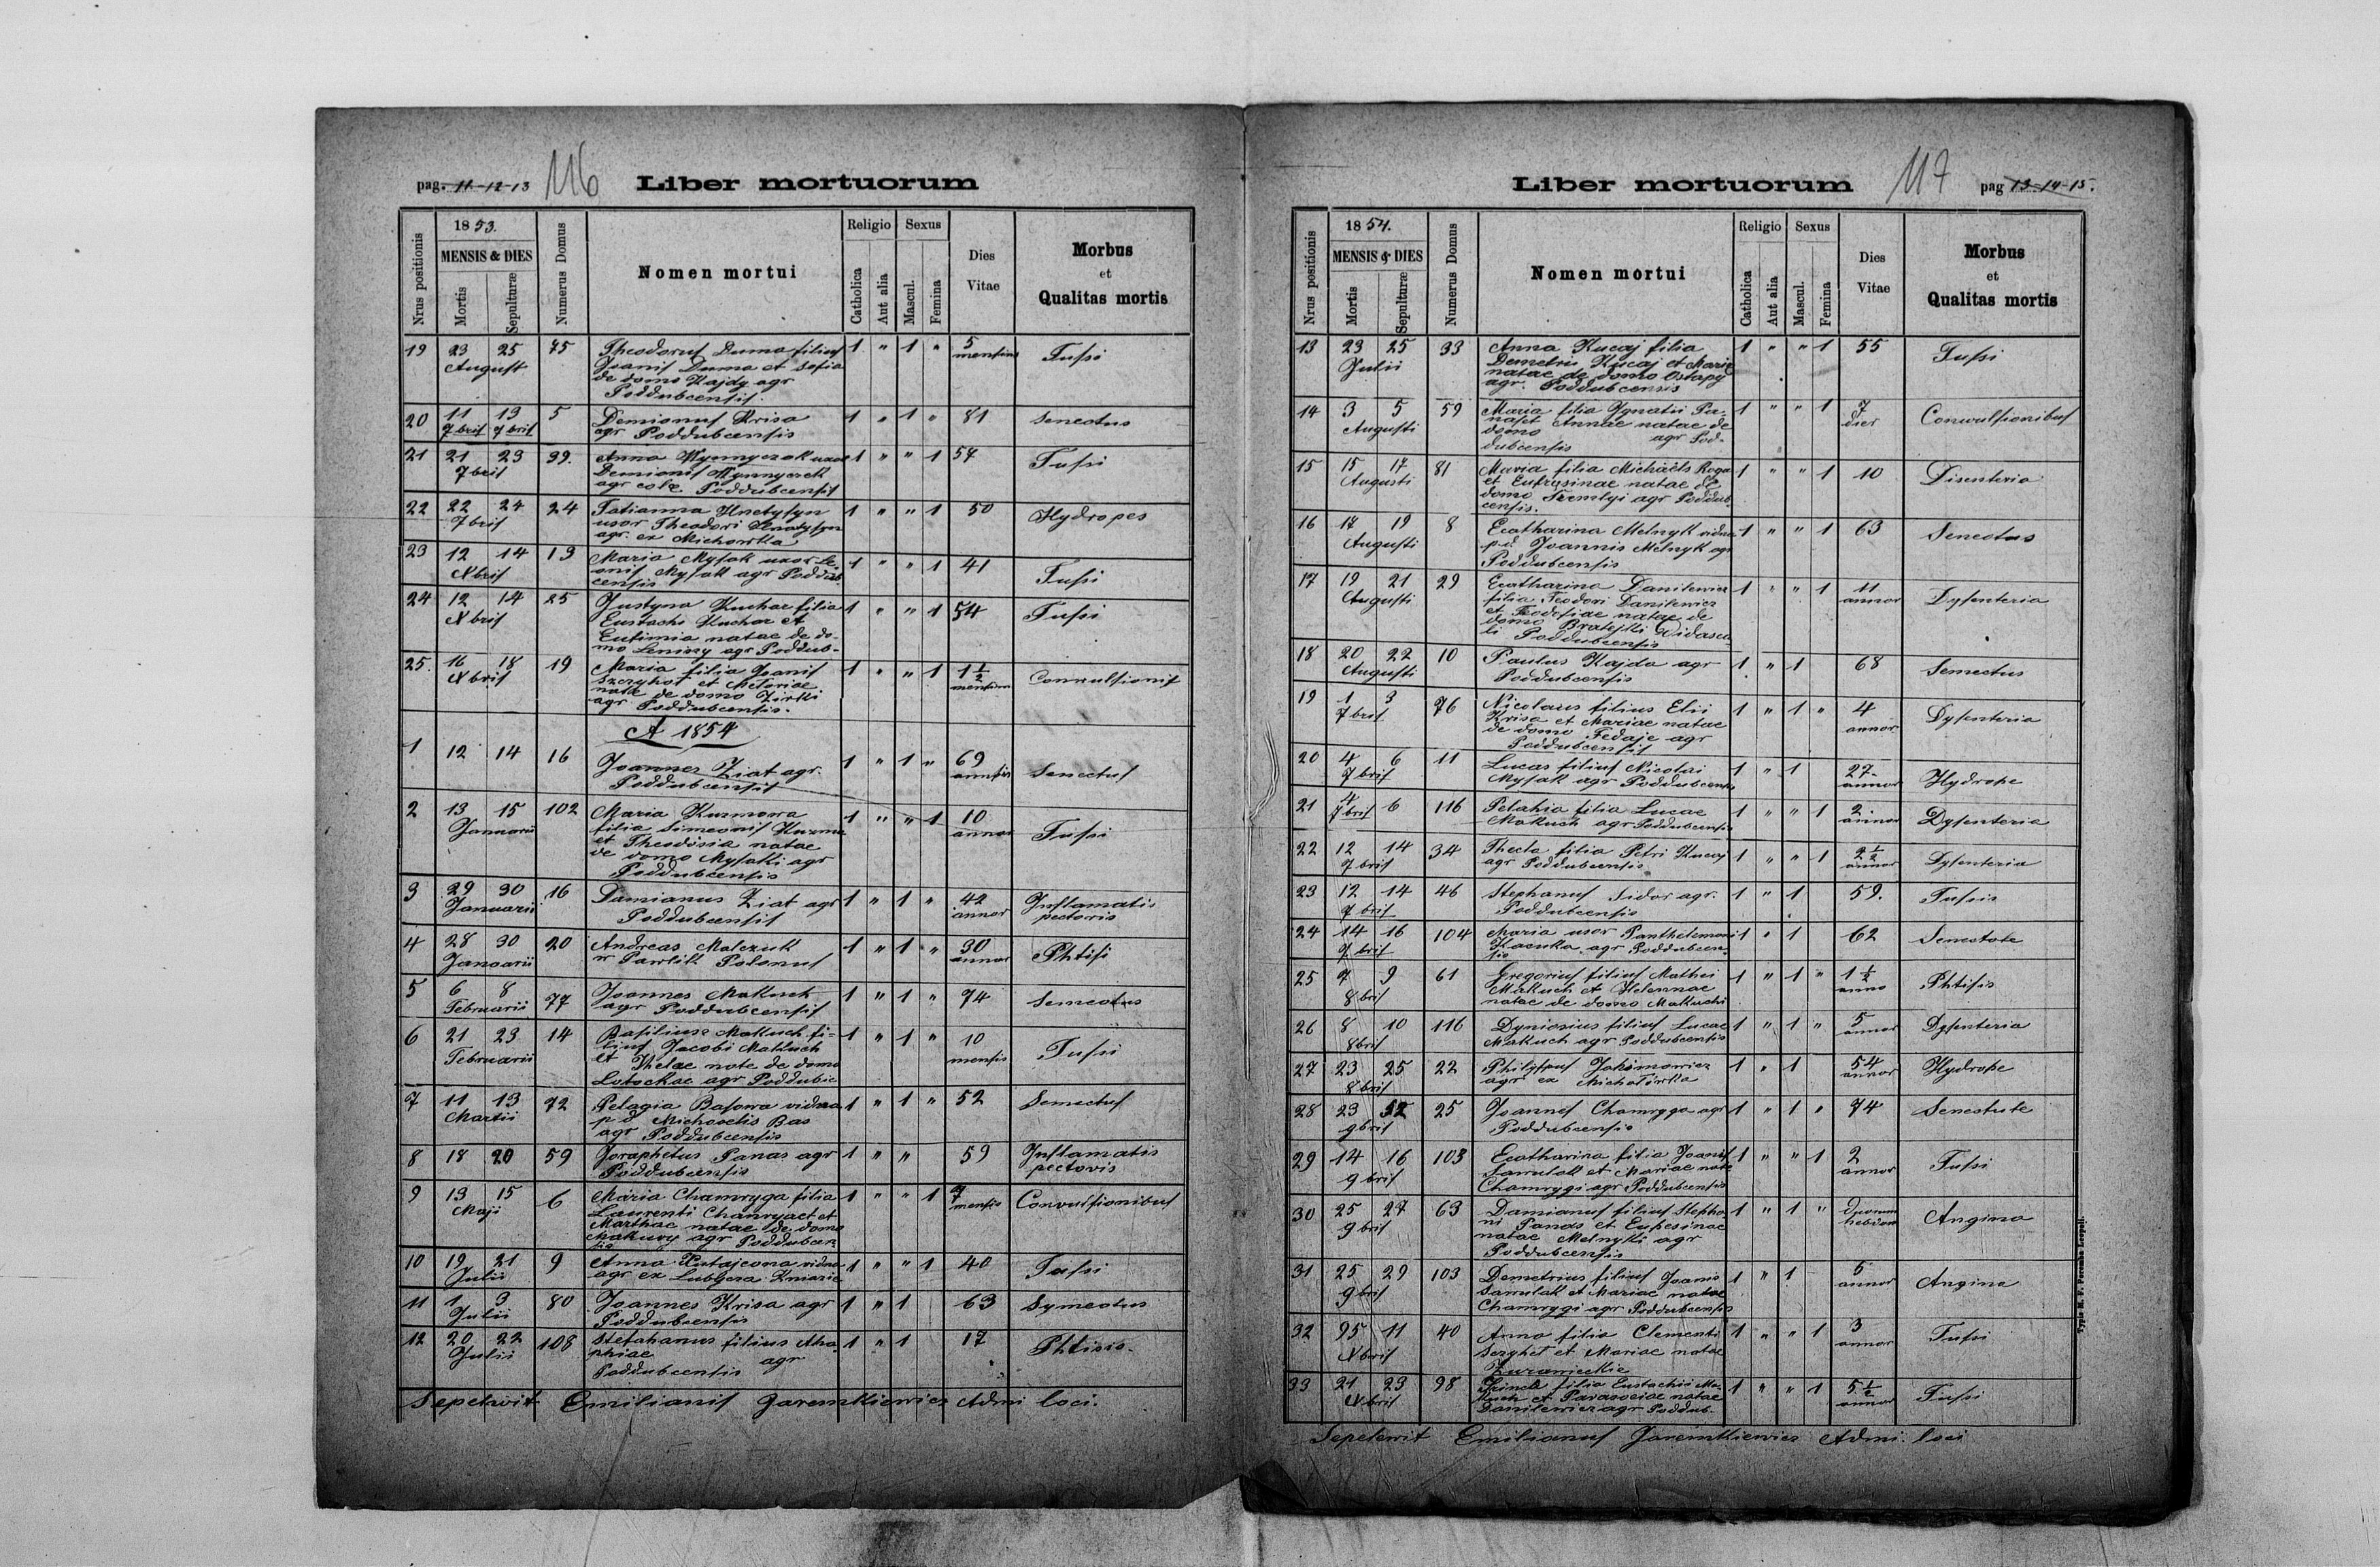 pag. 11-12-13 116 Liber mortuorum
Nrus positionis
1853.
MENSIS & DIES
Mortis
Sepulturæ
Numerus Domus
Nomen mortui
Religio
Catholica
Aut alia
Sexus
Mascul.
Femina
Dies
Vitae
Morbus
et
Qualitas mortis
19 23 25 75 Theodorus Duma filius 1 " 1 " 5
August Joanis Duma et Sofia mensium Tussi
de domo Kajdy agr
Poddubcensis.
20 11 13 5 Demianus Krisa 1 " 1 " 81 Senectus
7bris 7bris agr Poddubcensis
21 21 23 39. Anna Wynnyczok uxor 1 " " 1 57 Tussi
7bris Demionis Wynnyczek
agr cole Poddubcensis
22 22 24 24 Tatianna Hnetysyn 1 " " 1 50 Hydropes
7bris uxor Theodori Hnatysyn
agr. ex Michowka
23 12 14 13 Maria Mysak uxor Le- 1 " " 1 41 Tussi
Xbris onis Mysak agr Poddub-
censis
24 12 14 25 Justyna Kuchar filia 1 " " 1 54 Tussi
Xbris Eustachi Kuchar et
Eutimia natae de do-
mo Leniwy agr Poddub-
25. 16 18 19 Maria filia Joanis 1 " " 1 1 1/2 Convulsionis
Xbris Szeryhot et Metoriae mensium
nata de domo Zirki
agr Poddubcensis.
A 1854
1 12 14 16 Joannes Ziat agr. 1 " 1 " 69 Senectus
Poddubcensis
2 13 15 102 Maria Kuzmowa 1 " " 1 10
Januarii filia Simeonis Kuzma annor Tussi
et Theodosia natae
de domo Mysakki agr
Poddubcensis
3 29 30 16 Damianus Ziat agr 1 " 1 " 42 Inflamatis
Januarii Poddubcensis annor pectoris
4 28 30 20 Andreas Malczuk 1 " 1 " 30 Phtisi
Januarii Pawlik Polonus annor
5 6 8 77 Joannes Makuch 1 " 1 " 74 Semectus
Februarii agr Poddubcensis
6 21 23 14 Basilius Makuch fi- 1 " 1 " 10
Februarii lius Jacobi Makuch mensis Tussi
et Theclae note de domo
Lotockae agr Poddubic
7 11 13 72 Pelagia Basowa vidua 1 " 1 " 52 Semectus
Martii p d Michaelis Bas
agr Poddubcensis
8 18 20 59 Joraphetus Panas agr 1 " " 59 Inflamatis
Poddubcensis pectoris
9 13 15 6 Maria Chamryga filia 1 " " 1 7 Convulsionibus
Maji Laurenti Chamryact et mensis
Marthae natae de domo
Makuvy agr Poddubcen
sis
10 19 21 9 Anna vidua 1 " " 1 40 Tussi
Julii agr ex Lubycza Kniazie
11 1 3 80 Joannes Krisa agr 1 " 1 63 Symectus
Julii Poddubcensis
12 20 22 108 Stefahanus filius Aha- 1 " 1 17 Phtisis.
Julii phiae agr
Poddubcensis
Sepeliwit Emilianis Jaremkiewicz Admi loci.
Liber mortuorum 117 pag 13-14-15.
Nrus positionis
1854.
MENSIS & DIES
Mortis
Sepulturæ
Numerus Domus
Nomen mortui
Religio
Catholica
Aut alia
Sexus
Mascul.
Femina
Dies
Vitae
Morbus
et
Qualitas mortis
13 23 25 33 Anna Kucaj filia 1 " " 1 55 Tussi
Julii Demetrii Kucaj et Marie
natae de domo Ostapy
agr. Poddubcensis
14 3 5 59 Maria filia Ignatii Pa- 1 " " 1 7 Convulsionibus
Augusti nas et Annae natae de dier
domo agr Pod-
dubcensis
15 15 17 81 Maria filia Michaels Roga 1 " " 1 10 Disenteria
Augusti et Eufrysinae natae de
domo Szemlyi agr Poddub
censis.
16 17 19 8 Ecatharina Melnyk vidua 1 " " 1 63 Senectus
Augusti p d Joannis Melnyk agr
Poddubcensis
17 19 21 29 Ecatharina Danilewicz 1 " " 1 11
Augusti filia Teodori Danilewicz annor Dysenteria
et Teodosiae natae de
domo Bratejki Didascu
li Poddubcensis
18 20 22 10 Paulus Kajda agr 1 " 1 68 Semectus
Augusti Poddubcensis
19 1 3 76 Nicolaus filius Elii 1 " 1 " 4 Dysenteria
7bris Krisa et Mariae natae annor
de domo Fedaje agr
Poddubcensis
20 4 6 11 Lucas filius Nicolai 1 " 1 27 Hydrope
7bris Mysak agr Poddubcensis annor
21 4 6 116 Pelahia filia Lucae 1 " " 1 2 Dysenteria
7bris Makuch agr Poddubcensis annor
22 12 14 34 Thecla filia Petri Kucaj 1 " " 1 2 1/2 Dysenteria
7bris agr Poddubcensis annor
23 12 14 46 Stephanus Sidor agr. 1 " 1 59. Tussis
7bris Poddubcensis
24 14 16 104 Maria uxor Panthelemoni 1 " 1 62 Senectute
7bris Kacuka agr Poddubcen-
sis
25 7 9 61 Gregorius filius Mathei 1 " 1 " 1 1/2 Phtisis
8bris Makuch et Helennae anno
natae de domo Makuchi
26 8 10 116 Dyniosius filius Lucae 1 " 1 " 5 Dysenteria
8bris Makuch agr Poddubcensis annor
27 23 25 22 Philippus Jakimowicz 1 " 1 54 Hydrope
8bris agr ex Michałówka annor
28 23 25 Joannes Chamryga agr 1 " 1 " 74 Senectute
9bris Poddubcensis
29 14 16 103 Ecatharina filia Joanis 1 " " 1 2 Tussi
9bris Samulak et Mariae nata annor
Chamrygi agr Poddubcensis
30 25 27 63 Damianus filius Stepha- 1 " 1 " duorum Angina
9bris ni Panas et Eufesinae hebdom
natae Melnyki agr
Poddubcensis
31 25 29 103 Demetrius filius Joanis 1 " 1 5 Angina
9bris Samulak et Mariae natae annor
Chamrygi agr Poddubcensis
32 11 40 Anna filia Clementi 1 " " 1 3 Tussi
Xbris Seryhet et Mariae natae annor
Zuranieckie
33 21 23 98 filia Eustachii Ma- 1 " " 1 5 1/2 Tussi
Xbris kuch et Parasceiae natae annor
Danilewicz agr Poddub.
Sepelewit Emilianus Jaremkiewicz Admi. loci
Typis H. F. Poremba Leopoli.